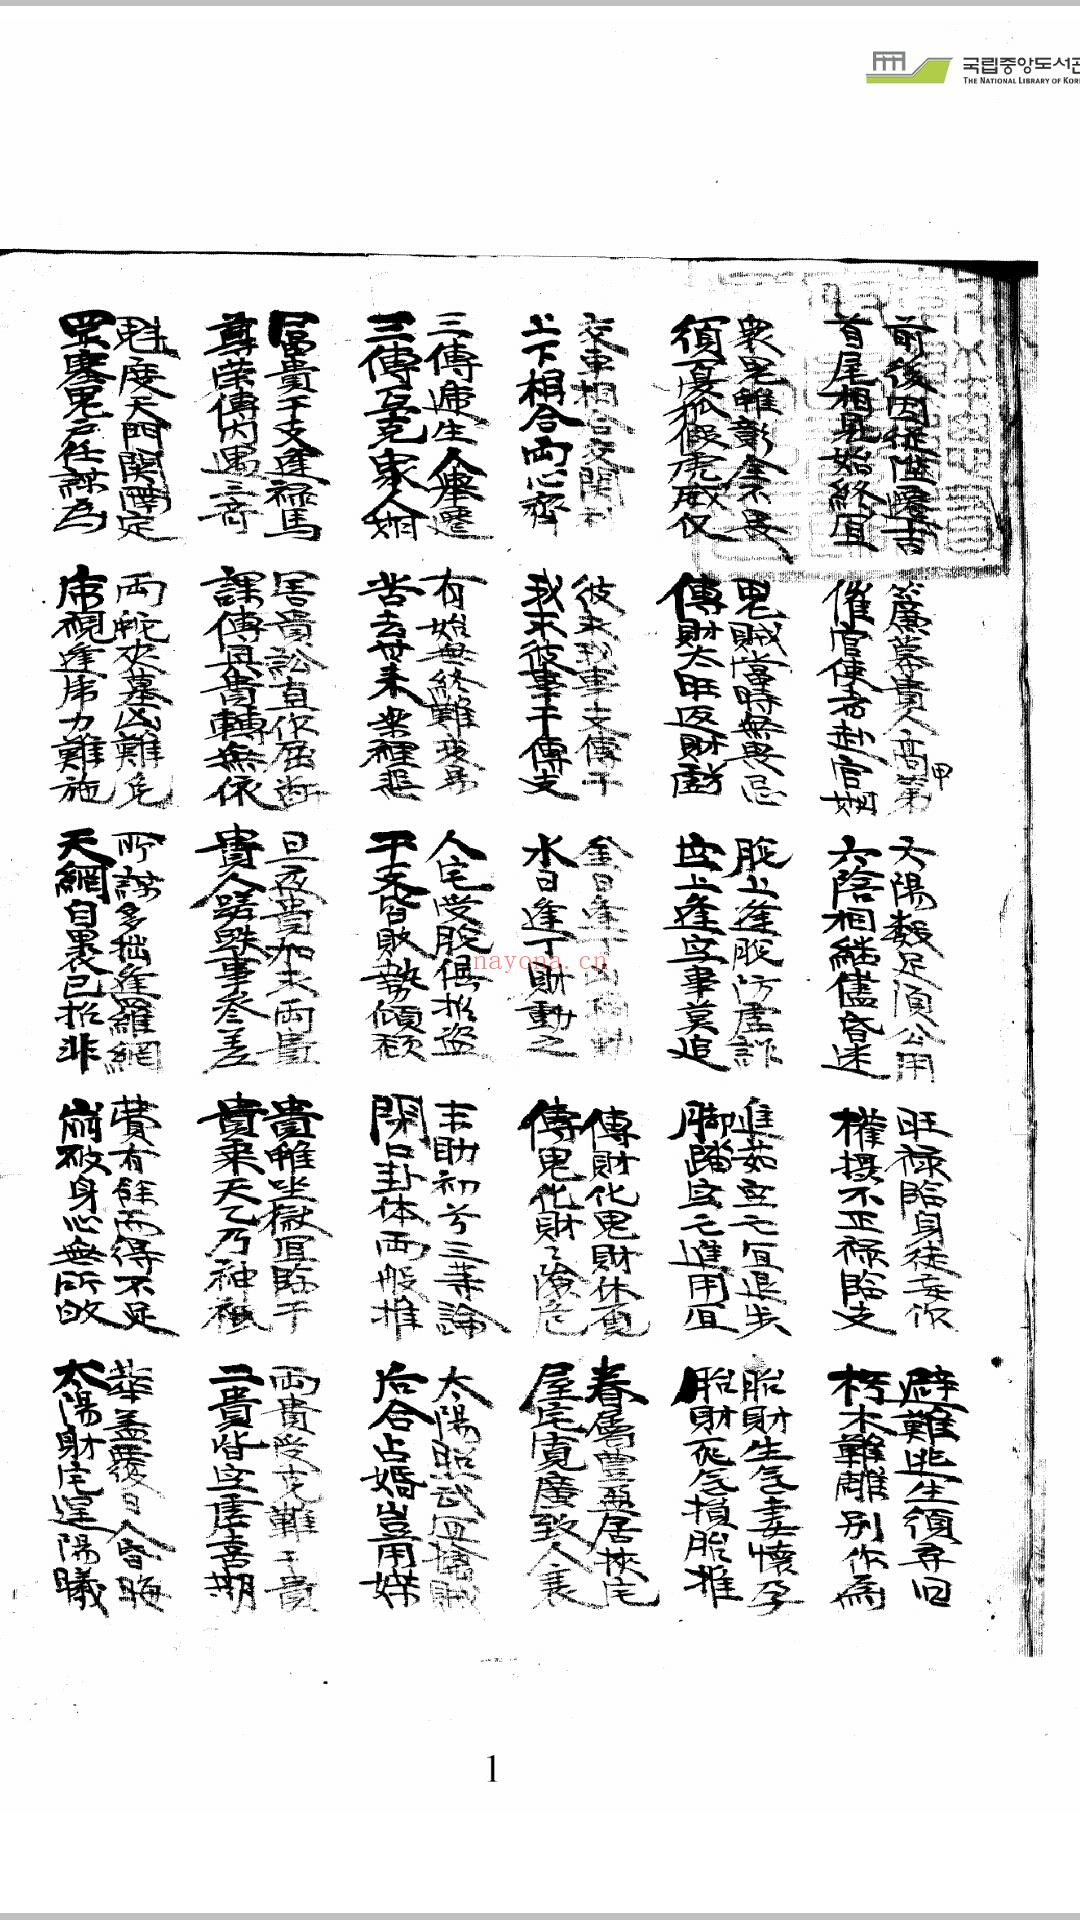 국립중앙도서관
THE NATIONAL LIBRARY OF KOR
前後引從陞遷吉
首尾相見始終宜
簾幕貴人高甲第
催官使者赴官期
六陽數足須公用
六陰相継儘昏迷
旺祿臨身徒妄作
權摂不正祿臨支
避難逃生須尋旧
朽木難雕別作爲
衆鬼雖彰全不畏
須憂狐假虎威仪
鬼賊當時無畏忌
傳財太旺返財虧
脫上逢脫防虛詐
空上逢空事莫追
進茹空亡宜退步
脚踏空亡進用宜
胎財生气妻懷孕
胎財死气損胎推
交車相合交関利
上下相合両心齊
彼求我事支傳干
我求彼事干傳支
金日逢丁凶禍動
水日逢丁財動之
傳財化鬼財休覓
傳鬼化財々險危
眷属豊盈居狹宅
屋宅寬廣致人衰
三傳遞生人擧遷
三傳互克衆人欺
有始無終難変易
苦去甘来楽裡悲
人宅受脫俱招盜
干支皆敗勢傾頹
末助初兮三等論
閉口卦体両般推
太陽照武宜擒賊
后合占婚豈用媒
冨貴干支逢祿馬
尊榮傳内遇三奇
害貴訟直作屈断
課傳俱貴轉無依
旦夜貴加求両貴
貴人蹉跌事叄差
貴雖坐獄宜臨干
貴乘天乙乃神祗
両貴受克難干貴
二貴皆空虛喜期
魁度天門関隔定
罡塞鬼户任謀為
両蛇夾墓凶難免
虎視逢虎力難施
所謀多拙逢羅網
天網自裹已招非
費有餘而得不足
用破身心無所歸
華盖覆日人昏晦
太陽射宅逞陽曦
nayona.cn
1